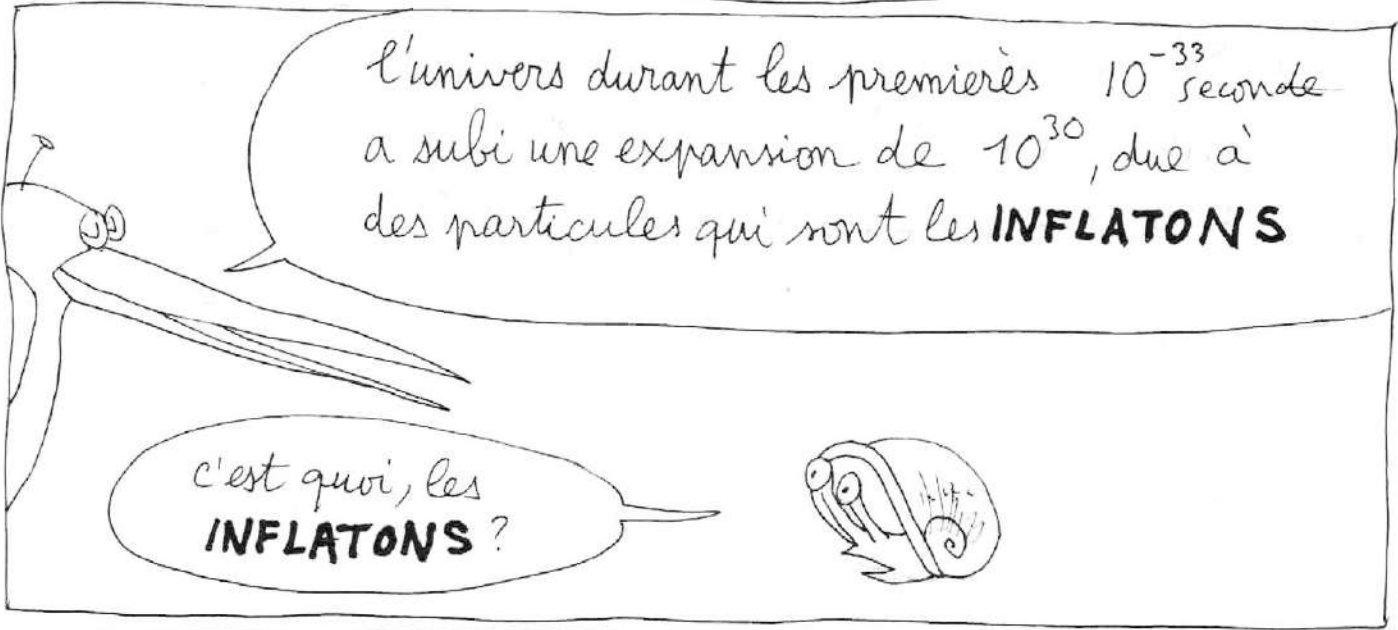 l'univers durant les premierès 10⁻³³ seconde
a subi une expansion de 10³⁰, due à
des particules qui sont les INFLATONS
c'est quoi, les
INFLATONS ?